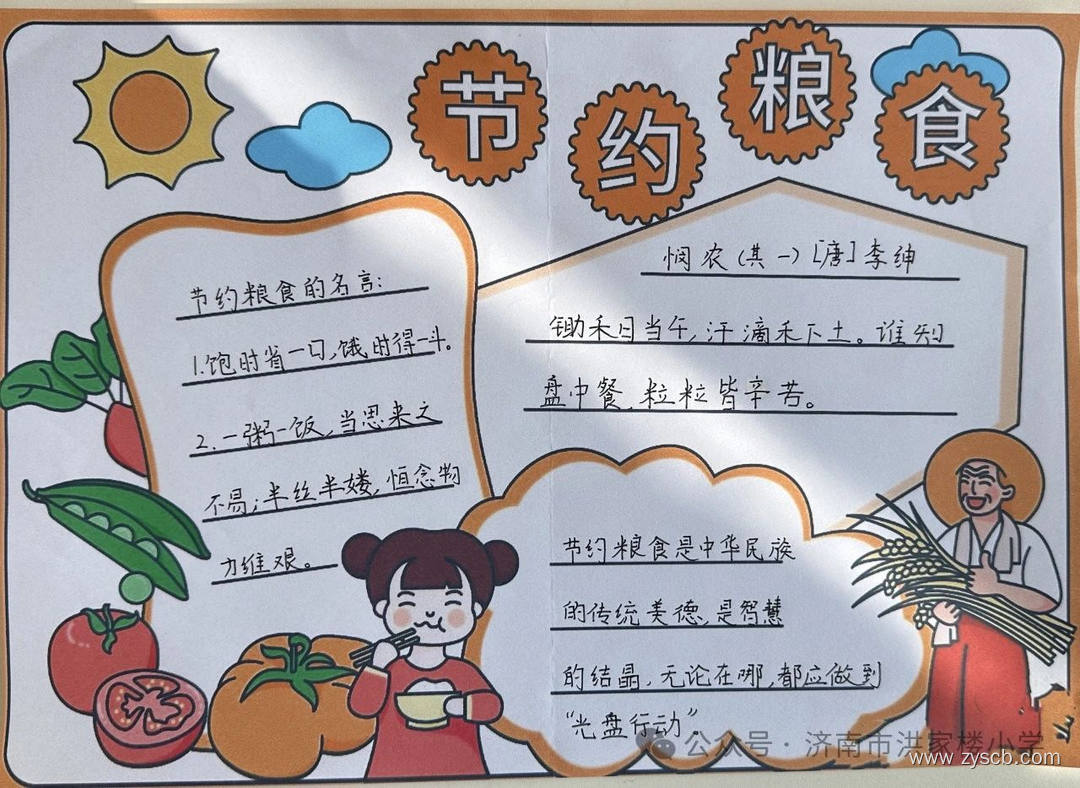 节约粮食
节约粮食的名言:
1.饱时省一口,饿时得一斗。
2.一粥一饭,当思来之
不易;半丝半缕,恒念物
力维艰。
悯农(其一)[唐]李绅
锄禾日当午,汗滴禾下土。谁知
盘中餐,粒粒皆辛苦。
节约粮食是中华民族
的传统美德,是智慧
的结晶,无论在哪,都应做到
“光盘行动”。
公众号·济南市洪家楼小学
www.zyscb.com